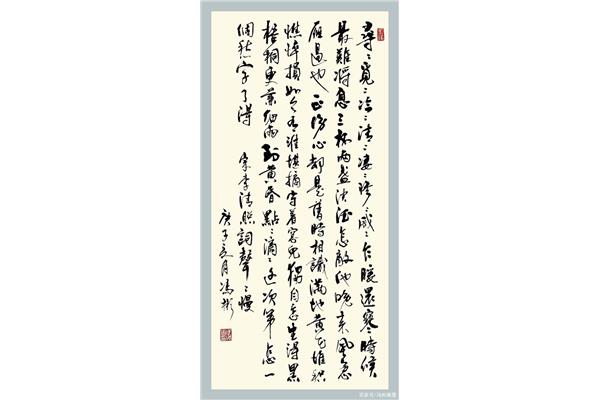 尋〻覓〻冷〻清〻凄〻慘〻戚〻乍暖還寒時候
最難將息三杯兩盞淡酒怎敵他晚來風急
雁過也正傷心却是舊時相識滿地黃花堆積
憔悴損如今有誰堪摘守着窗兒獨自怎生得黑
梧桐更兼細雨到黃昏點〻滴〻這次第怎一
個愁字了得
宋李清照詞聲〻慢
庚子月馮彬